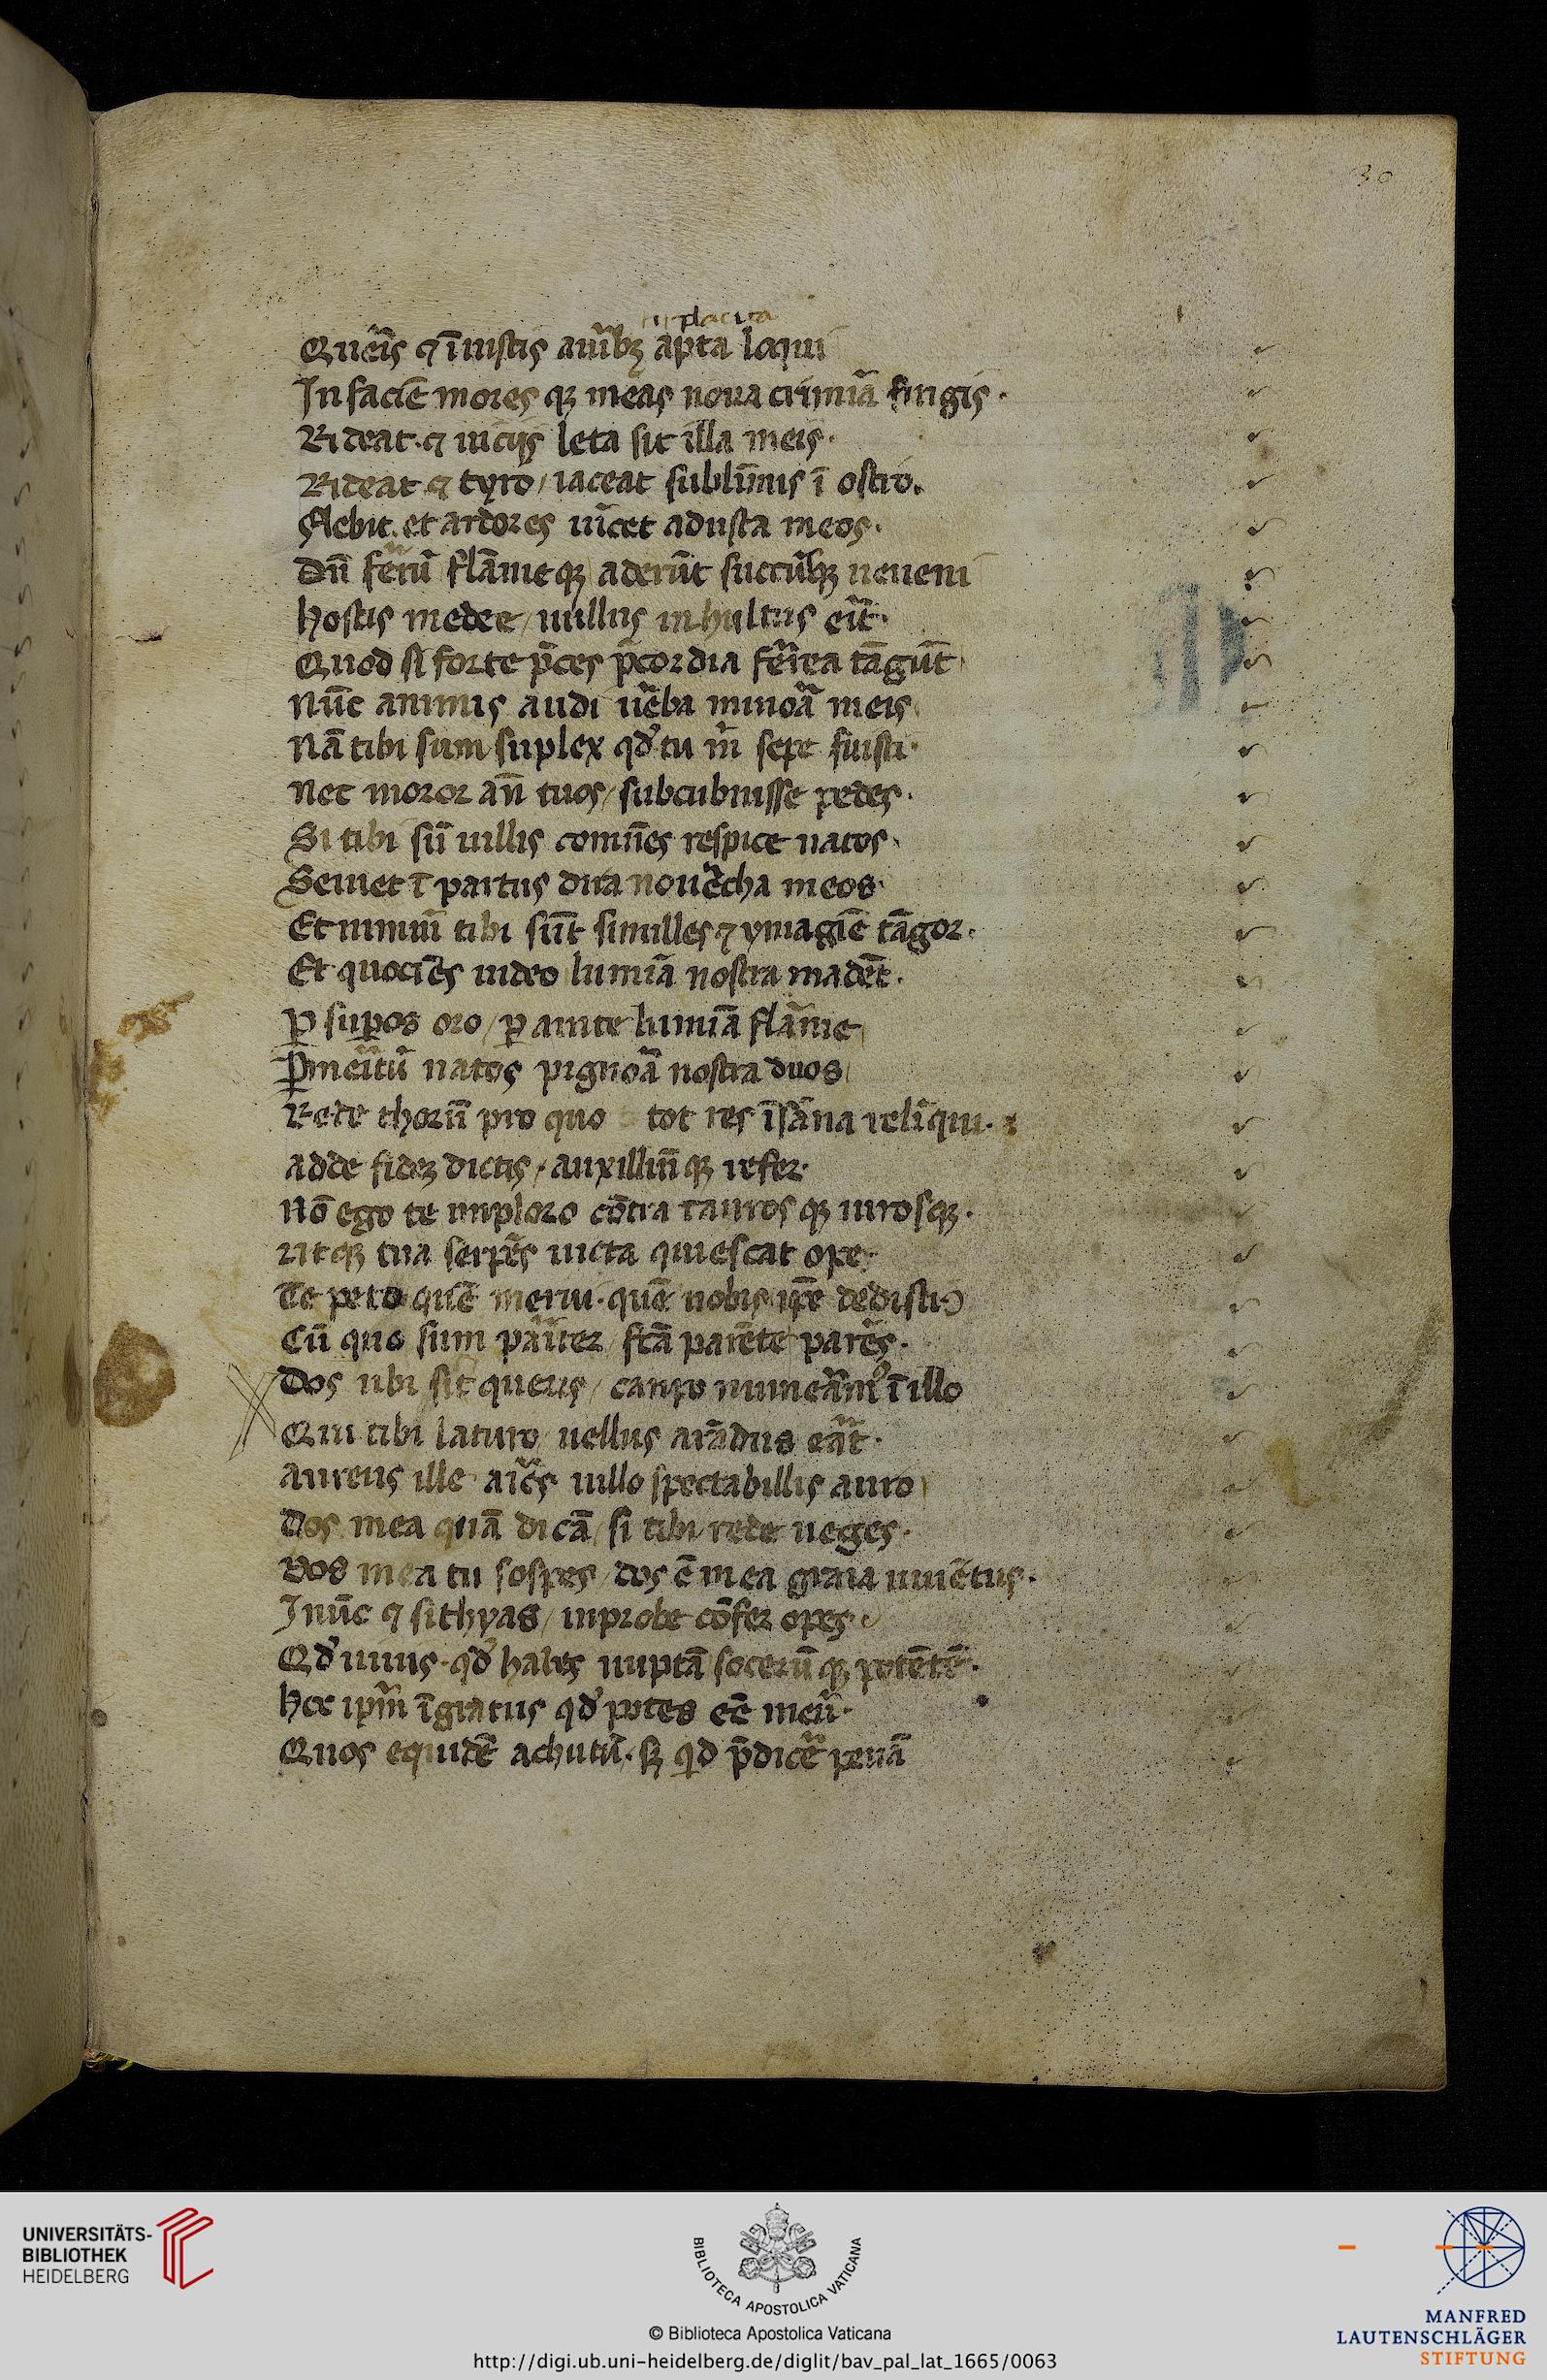 30
placita
Queris ⁊ ī iustis aurib; apta loqui
In faciē mores q; meas noua crimīa fingis.
Rideat. ⁊ uicijs leta sit illa meis.
Rideat ⁊ tyro / iaceat sublīmis ī ostro.
Flebit. et ardores uīcet adusta meos.
Dū ferrū flāmeq; aderūt succusq; neueni
Hostis medee / nullus inhultus erit.
Quod si forte p̄ces p̄cordia ferrea tāgūt
Nūc animis audi uerba minora meis
Nā tibi sum suplex qd̛ tu m̄ sepe fuisti.
Nec moror añ tuos / subcubuisse pedes.
Si tibi sū uillis comūes respice natos.
Seuiet ī partus dira nouercha meos.
Et nimiū tibi sūt similles ⁊ ymagīe tāgor.
Et quociēs uideo lumīa nostra madēt.
P̱ supos oro / p̱ auite lumīa flāme
P̱meritū natos pignora nostra duos
Rede thorū pro quo tot res īsāna relīqui.
adde fidez dictis / auxilliū q; refer.
Nō ego te imploro cōtra tauros q; uirosq;.
Utq; tua serpēs uicta quiescat ope.
Te peto quē merui. quē nobis ip̄e dedisti
Cū quo sum pariter f̄ca parēte parēs.
Dos ubi sit queris / canpo numerām⁹ ī illo
Qui tibi laturo uellus arādus erat.
aureus ille aries uillo spectabillis auro
Dos mea quā dicā si tibi rede neges.
Dos mea tu sospes / dos ē mea graia iuuētus.
I nūc ⁊ sithyas / inprobe cōfer opes.
Qd̛ uiuis. qd̛ habes nuptā socerū q; potētē.
Hoc ip̄m īgratus qd̛ potes eē meū.
Quos equidē achutū. s; qd p̄dicere penā
UNIVERSITÄTS-
BIBLIOTHEK
HEIDELBERG
BIBLIOTECA APOSTOLICA VATICANA
© Biblioteca Apostolica Vaticana
http://digi.ub.uni-heidelberg.de/diglit/bav_pal_lat_1665/0063
MANFRED
LAUTENSCHLÄGER
STIFTUNG